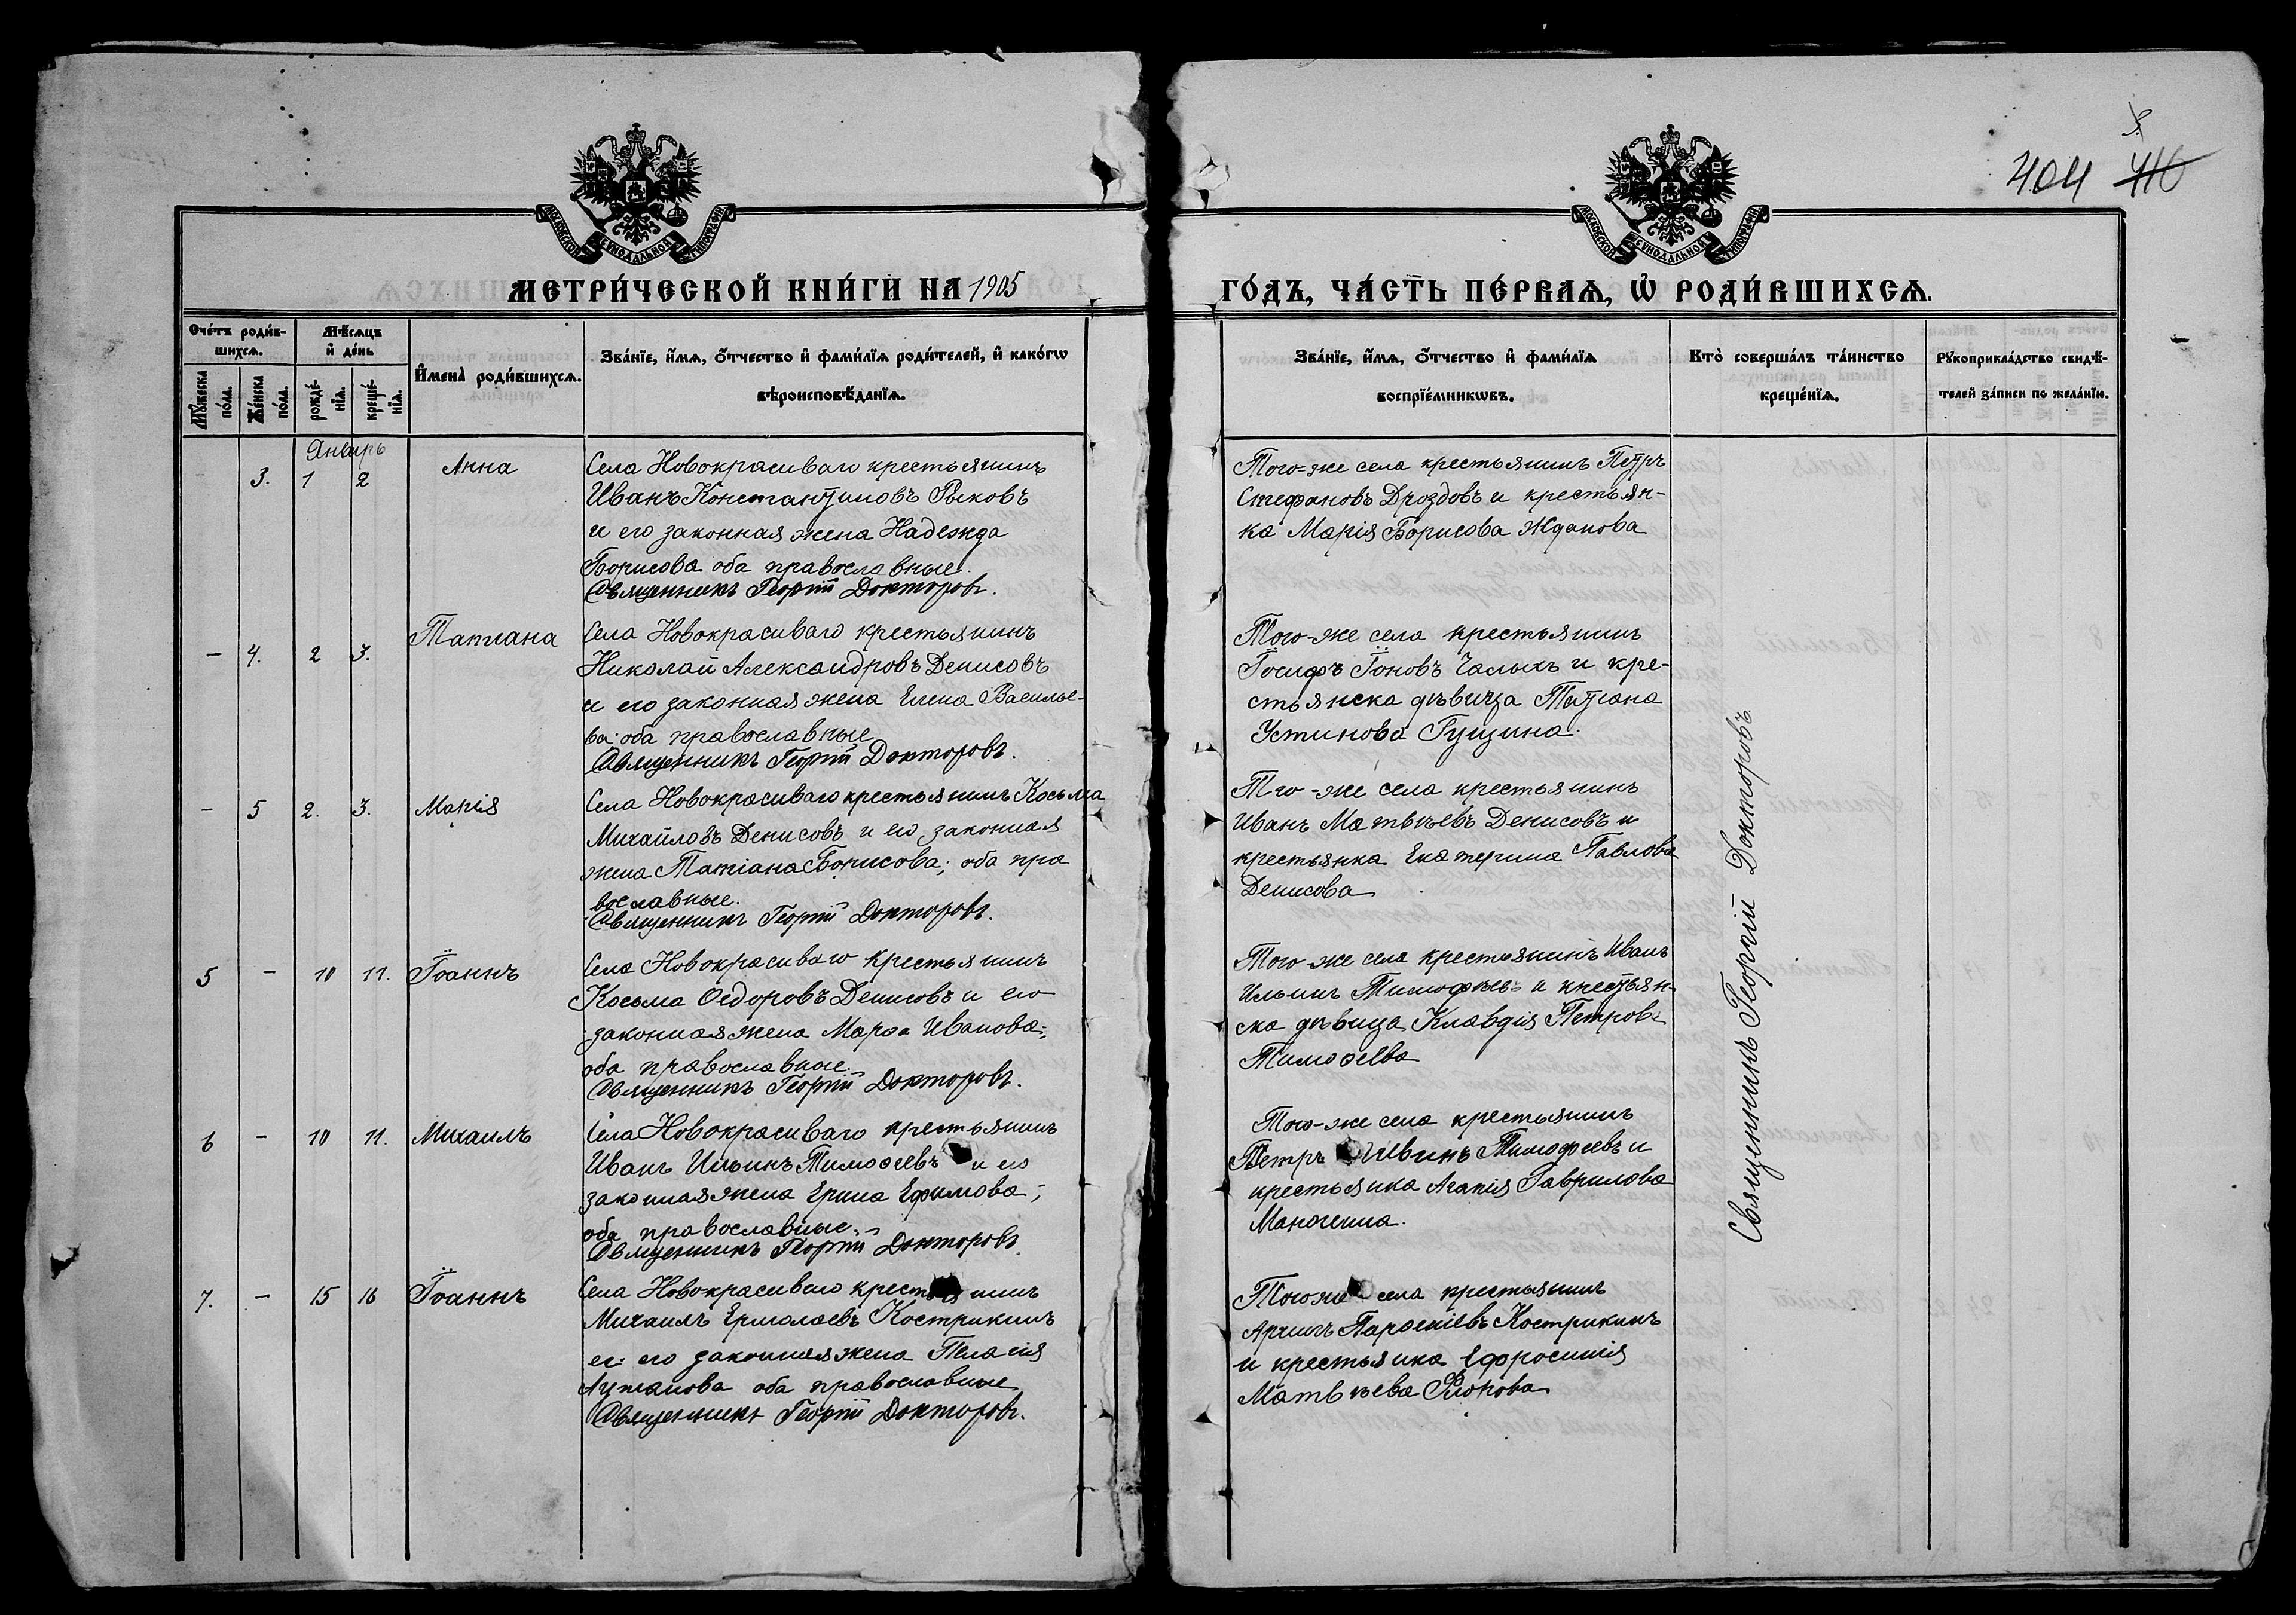 404 410
МОСКОВСКОЙ СѴНОДАЛЬНОЙ ТИПОГРАФІИ
МОСКОВСКОЙ СѴНОДАЛЬНОЙ ТИПОГРАФІИ
МЕТРИ́ЧЕСКОЙ КНИ́ГИ НА 1905
ГО́ДЪ, ЧА́СТЬ ПЕ́РВАѦ, Ѡ҆ РОДИ́ВШИХСѦ.
Сче́тъ роди́в-
шихсѧ.
Мꙋ́жеска
по́ла.
Же́нска
по́ла.
Мѣ́сѧцъ
и҆ де́нь
рожде́-
нїѧ.
креще́-
нїѧ.
И҆мена̀ роди́вшихсѧ.
Зва́нїе, и҆́мѧ, ѻ҆́тчество и҆ фами́лїѧ роди́телей, и҆ како́гѡ
вѣроисповѣ́данїѧ.
Зва́нїе, и҆́мѧ, ѻ҆́тчество и҆ фами́лїѧ
воспрїе́мникѡвъ.
Кто̀ соверша́лъ та́инство
креще́нїѧ.
Рꙋкоприкла́дство свидѣ́-
телей за́писи по жела́нїю.
Январь
– 3. 1 2 Анна
Села Новокрасиваго крестьянинъ
Иванъ Константиновъ Рыковъ
и его законная жена Надежда
Борисова оба православные.
Священникъ Георгій Докторовъ.
Того-же села крестьянинъ Петръ
Стефановъ Дроздовъ и крестьян-
ка Марія Борисова Жданова
– 4. 2 3. Татіана
Села Новокрасиваго крестьянинъ
Николай Александровъ Денисовъ
и его законная жена Елена Василье-
ва; оба православные
Священникъ Георгій Докторовъ.
Того-же села крестьянинъ
Іосифъ Іоновъ Чалыхъ и кре-
стьянска дѣвица Татіана
Устинова Гущина.
– 5 2. 3. Марія
Села Новокрасиваго крестьянинъ Косьма
Михайловъ Денисовъ и его законная
жена Татіана Борисова; оба пра
вославные.
Священникъ Георгій Докторовъ.
Того-же села крестьянинъ
Иванъ Матвѣевъ Денисовъ и
крестьянка Екатерина Павлова
Денисова
5 – 10 11. Іоаннъ
Села Новокрасиваго крестьянинъ
Косьма Ѳедоровъ Денисовъ и его
законная жена Марѳа Иванова;
оба православные.
Священникъ Георгій Докторовъ.
Того-же села крестьянинъ Иванъ
Ильинъ Тимофѣевъ и крестьян-
ска дѣвица Клавдія Петрова
Тимоѳеева
6 – 10 11. Михаилъ
Села Новокрасиваго крестьянинъ
Иванъ Ильинъ Тимоѳеевъ и его
законная жена Ерина Ефимова;
оба православные.
Священникъ Георгій Докторовъ.
Того-же села крестьянинъ
Петръ Тимофеевъ и
крестьянка Агапія Гаврилова
7. – 15 16 Іоаннъ
Села Новокрасиваго крестьянинъ
Михаилъ Ермолаевъ Кострикинъ
и его законная жена Пелагія
оба православные
Священникъ Георгій Докторовъ.
Того же села крестьянинъ
Парѳеніевъ Кострикинъ
и крестьянка Ефросинія
Матвѣева Фролова
Священникъ Георгій Докторовъ.